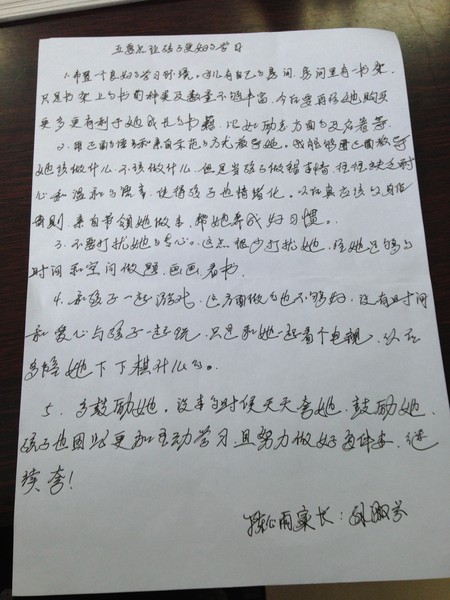 五要点让孩子更好的学习
1.布置一个良好的学习环境。女儿有自己的房间,房间里有一书架,
只是书架上的书的种类及数量不够丰富,今后要再给她购买
更多更有利于她成长的书籍,比如励志方面的及名著等。
2.用正面的语言和亲自示范的方式教导她。我能够用正面教导
她该做什么,不该做什么,但是当孩子做错事情,往往缺乏耐
心和温和的语言,使得孩子也情绪化。以后真应该以身作
则,亲自带领她做事,帮她养成好习惯。
3.不要打扰她的专心。这点很少打扰她,给她足够的
时间和空间做题,画画,看书。
4.和孩子一起游戏,这方面做的也不够好,没有时间
和爱心与孩子一起玩,只是和她一起看个电视,以后
多陪她下下棋什么的。
5.多鼓励她。没事的时候天天夸她,鼓励她,
孩子也因此更加主动学习且努力做好每件事,继
续夸!
雨家长:孙淑芬